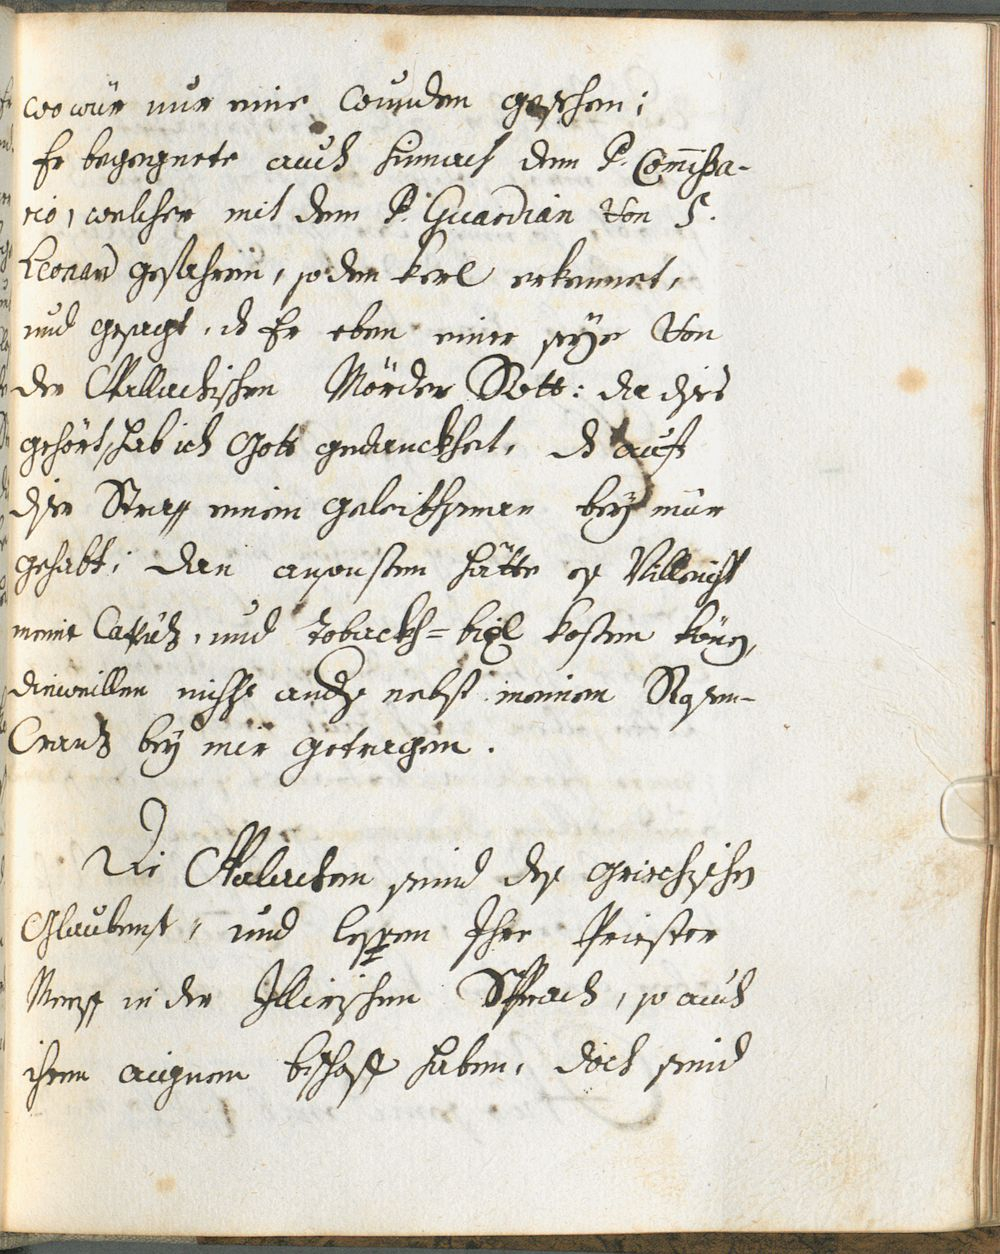 wo wür nur eine Wunden gesehen;
Er begegnete auch hinnach dem P. Com̄issa-
rio, welcher mit dem P. Guardian von S.
Leonard gefahren, so den kerl erkennet,
und gesagt, dz Er eben einer seÿe Von
der Wallachischen Mörder Rott: da dises
gehört, hab ich Gott gedanckhet, dz auff
diser Strass einen geleithsman beÿ mür
gehabt; dan ansonsten hätte es Villeicht
meine Caputz, und toback=bixl kosten könen,
dieweillen nichts anders nebst meinem Rosen-
Crantz beÿ mir getragen.
Die Walachen seind des griechischen
Glaubenst, und lessen Ihre Priester
Mess in der Illirischen Sprach, so auch
ihren aignen bischoff haben, doch seind